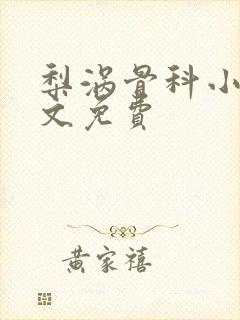 梨涡骨科小
文免費
黄家禧